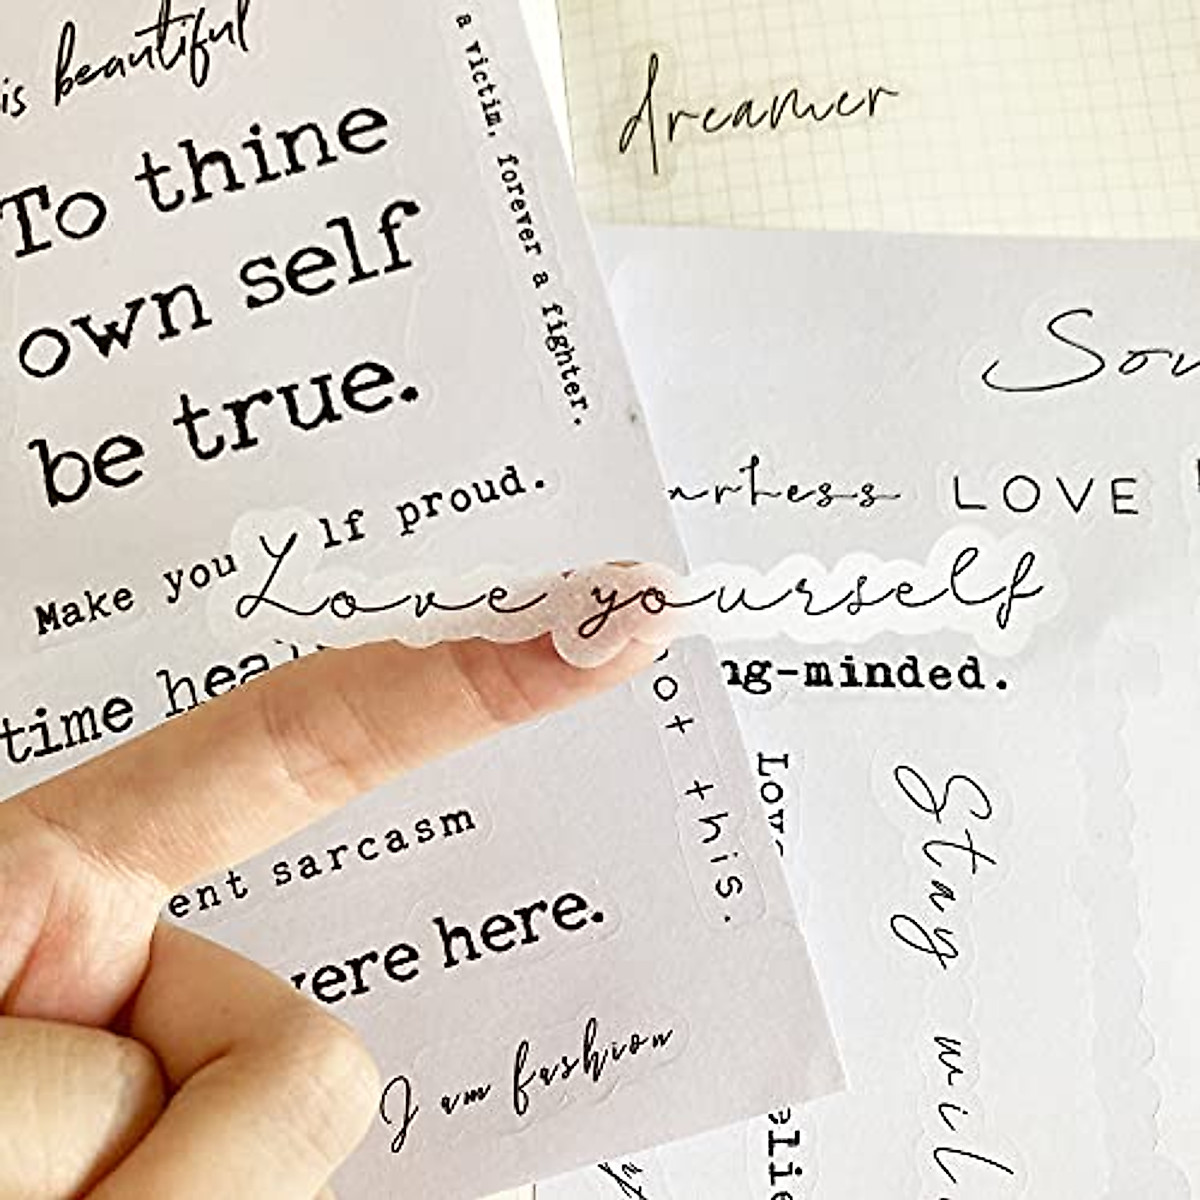 is beautiful
To thine
own self
be true.
a victim, forever a fighter.
Make you lf proud.
Love yourself
time hea
ent sarcasm
ere here.
I am fashion
not this.
dreamer
LOVE
ng-minded.
Stay